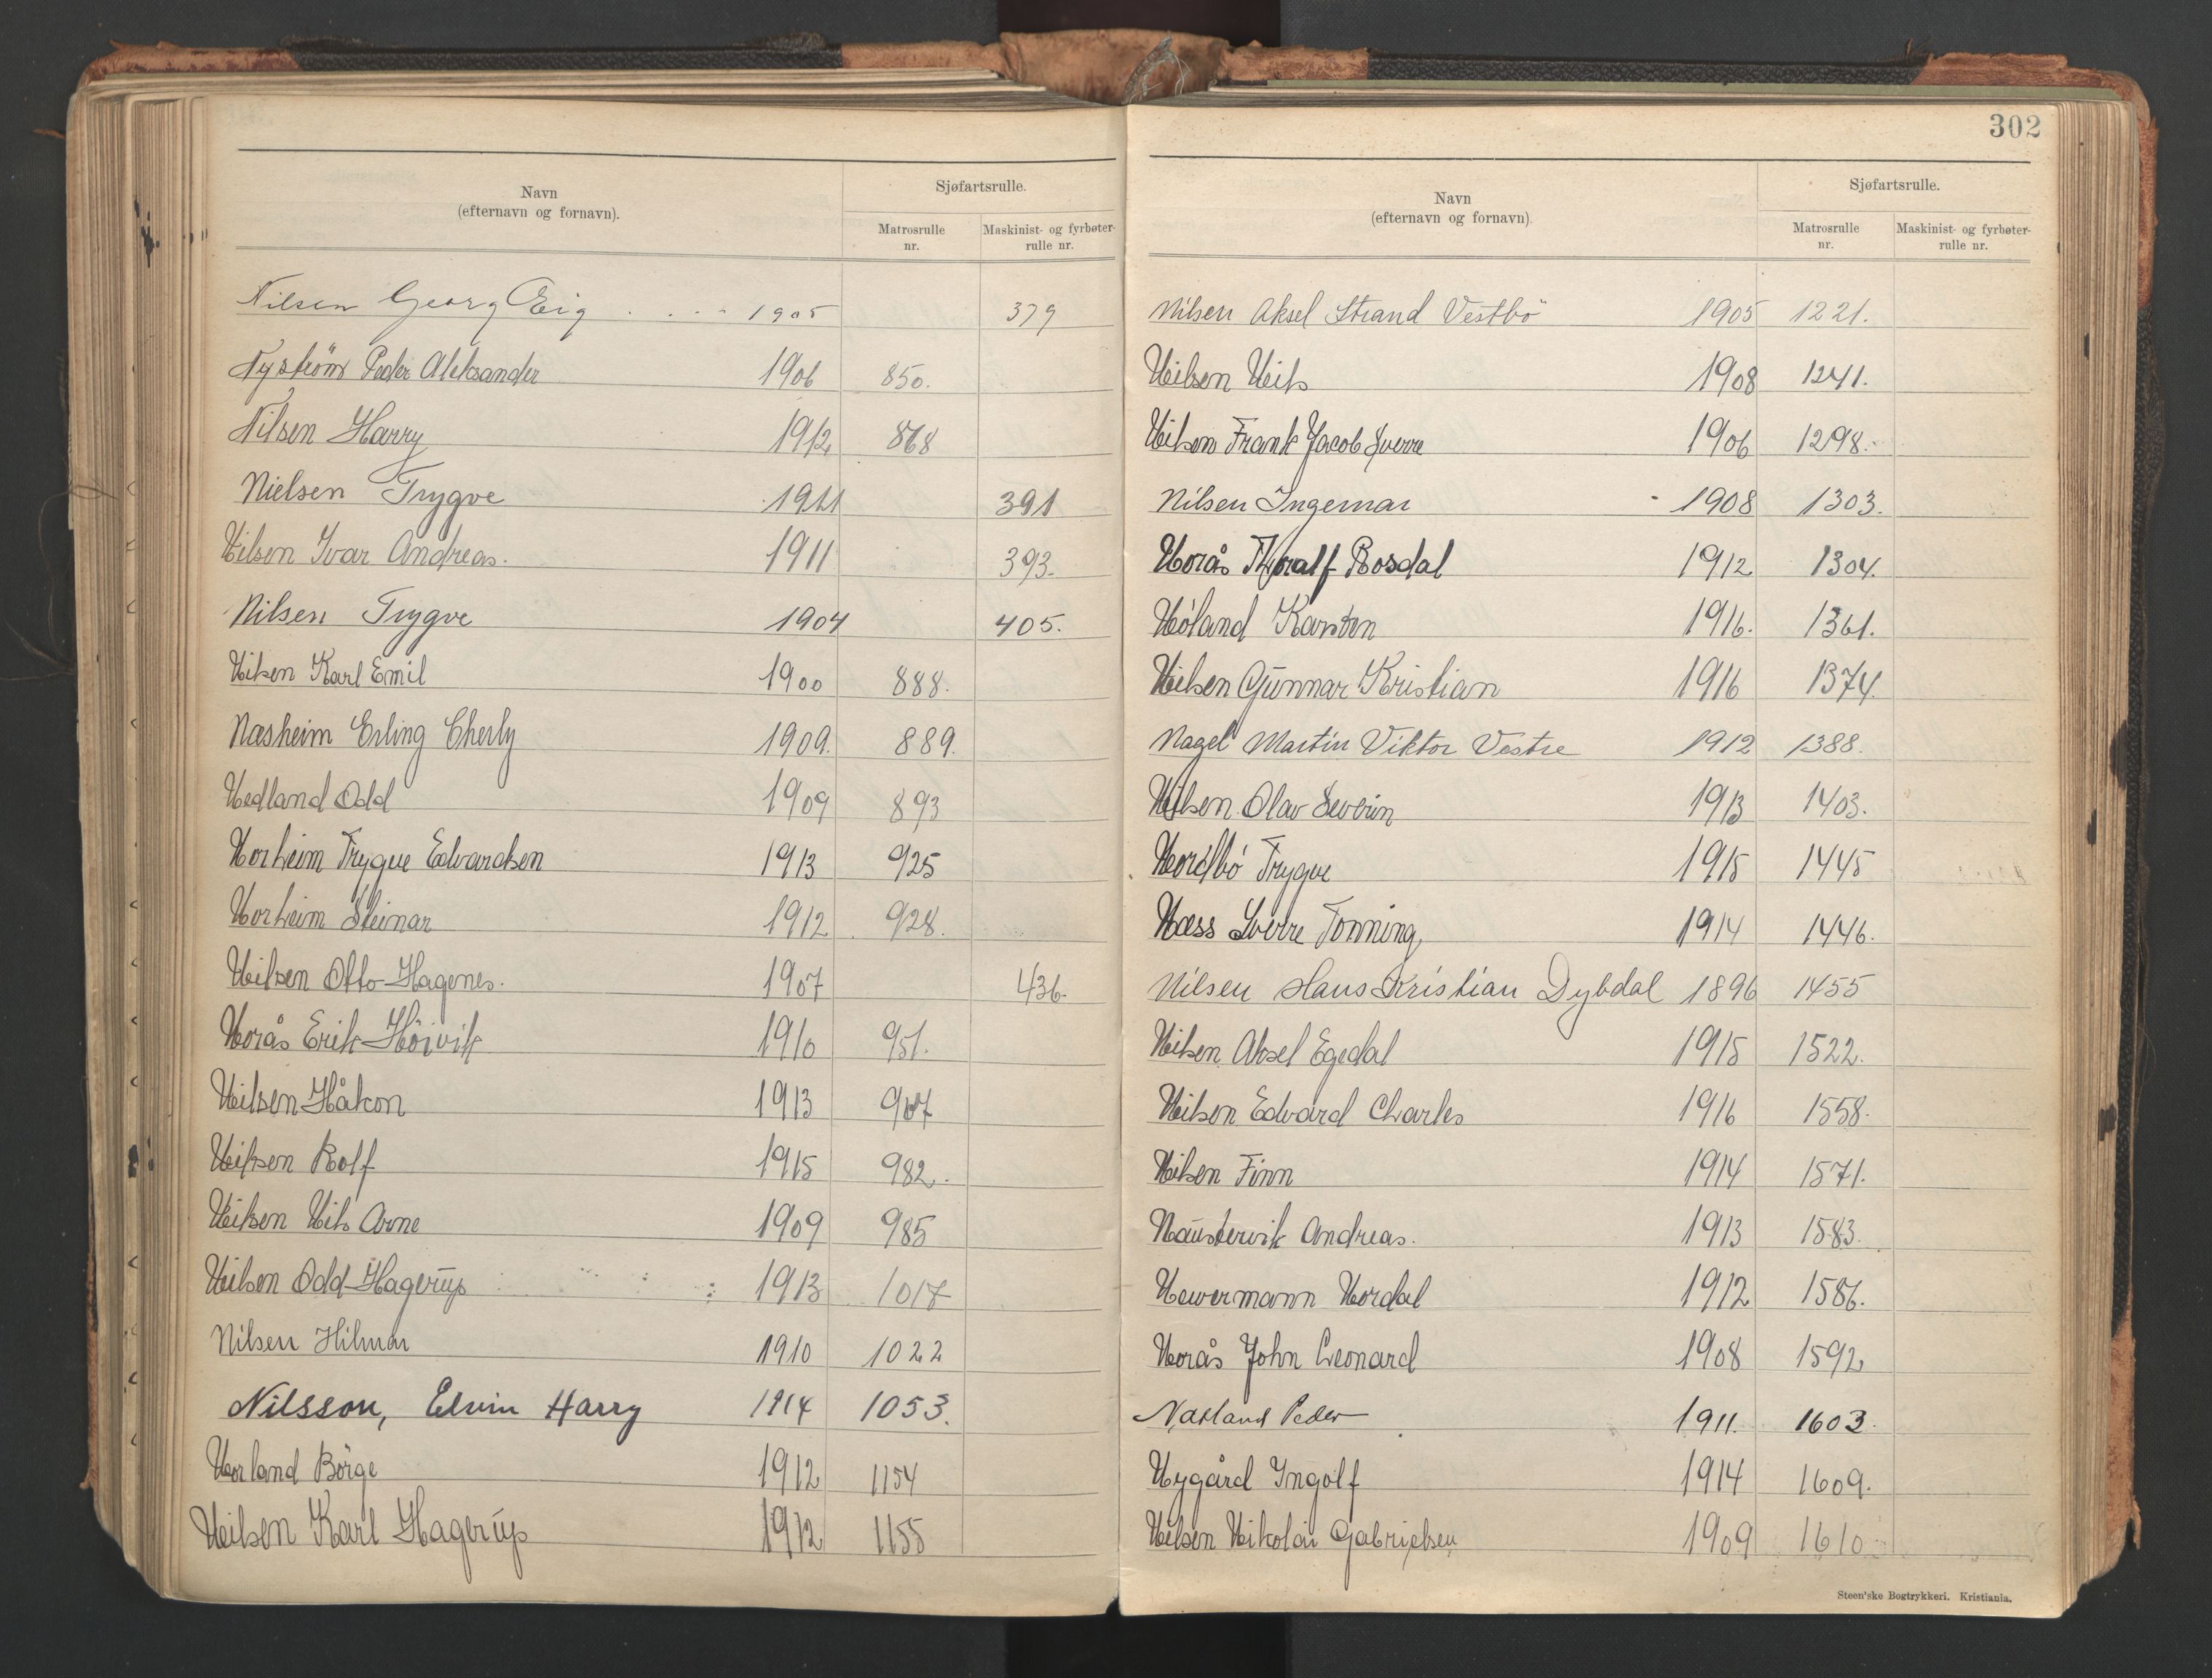 Navn
(efternavn og fornavn).
Sjøfartsrulle.
Matrosrulle nr.
Maskinist- og fyrbøter-rulle nr.
Nilsen Georg Eig . . . . 1905 379
Nystrøm Peder Aleksander 1906 850.
Nilsen Harry 1912 868
Nielsen Trygve 1911 391
Nilsen Ivar Andreas. 1911 393.
Nilsen Trygve 1904 405.
Nilsen Karl Emil 1900 888.
Næsheim Erling Cherly 1909. 889.
Nedland Odd 1909 893
Norheim Trygve Edvardsen 1913 925
Norheim Steinar 1912 928.
Nilsen Otto Hagenes. 1907 436.
Norås Erik Höivik 1910 951.
Nilsen Håkon 1913
Nilsen Rolf 1915 982.
Nilsen Nils Arne 1909 985
Nilsen Odd Hagerup 1913 1017
Nilsen Hilmar 1910 1022
Nilsson, Elvin Harry 1914 1053.
Norland Börge 1912 1154
Nilsen Karl Hagerup 1912 1155
302
Navn
(efternavn og fornavn).
Sjøfartsrulle.
Matrosrulle nr.
Maskinist- og fyrbøter-rulle nr.
Nilsen Aksel Strand Vestbö 1905 1221.
Nilsen Nils 1908 1241.
Nilsen Frank Jacob Sverre 1906 1298.
Nilsen Ingemar 1908 1303.
Norås Thoralf Rosdal 1912 1304.
Nöland Karsten 1916. 1361.
Nilsen Gunnar Kristian 1916 1374.
Nagel Martin Viktor Vestre 1912 1388.
Nilsen Olav Severin 1913 1403.
Nordbö Trygve 1915 1445
Næss Sverre Tonning, 1914 1446.
Nilsen Hans Kristian Dybdal 1896 1455
Nilsen Aksel Egedal 1915 1522.
Nilsen Edvard Charles 1916 1558.
Nilsen Finn 1914 1571.
Naustervik Andreas. 1913 1583.
Newermann Nordal 1912 1586.
Norås John Leonard 1908 1592
Nærland Peder 1911. 1603.
Nygård Ingolf 1914 1609.
Nilsen Nikolai Gabrielsen 1909 1610
Steen'ske Bogtrykkeri. Kristiania.